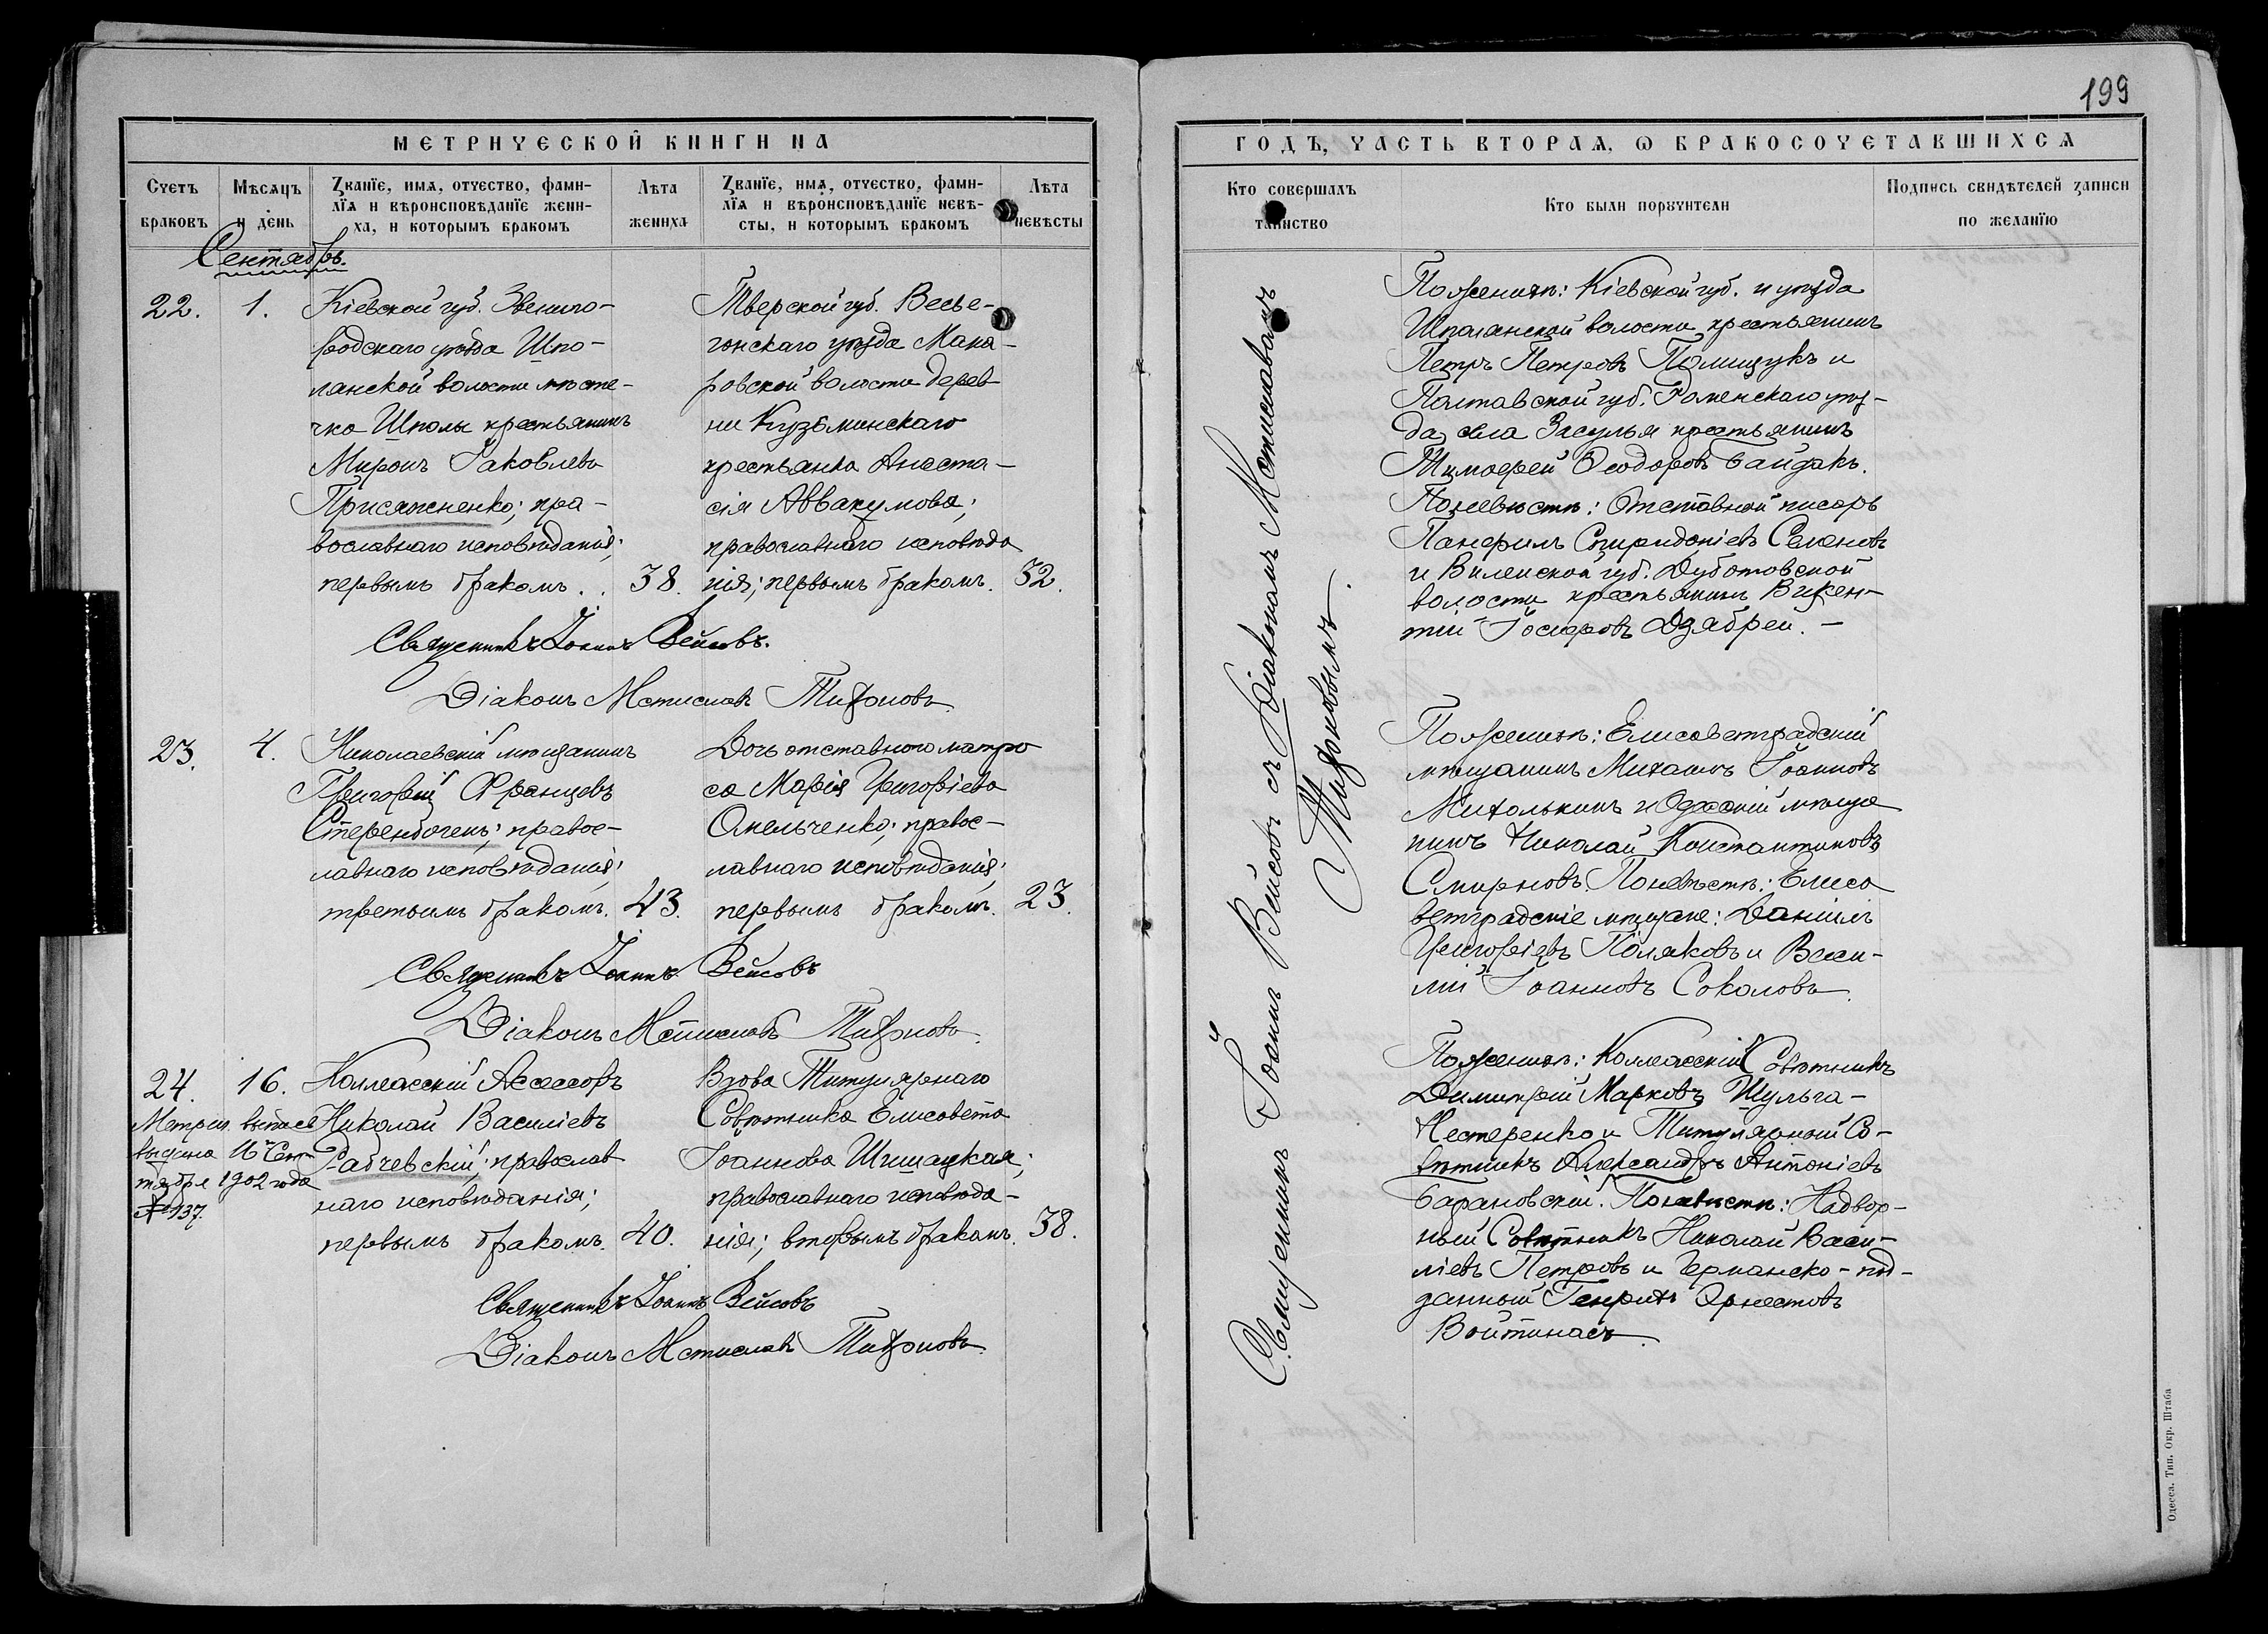 199
МЕТРИЧЕСКОЙ КНИГИ НА
ГОДЪ, ЧАСТЬ ВТОРАЯ, Ѡ БРАКОСОЧЕТАВШИХСЯ
Счетъ браковъ
Мѣсяцъ и день
Званїе, имя, отчество, фами-
лїя и вѣроисповѣданїе жени-
ха, и которымъ бракомъ
Лѣта жениха
Званїе, имя, отчество, фами-
лїя и вѣроисповѣданїе невѣ-
сты, и которымъ бракомъ
Лѣта невѣсты
Кто совершалъ таинство
Кто были порꙋчители
Подпись свидѣтелей записи
по желанїю
Сентябрь.
22.
1.
Кіевской губ. Звениго-
родскаго уѣзда Шпо-
лянской волости мѣсте-
чка Шполы крестьянинъ
Миронъ Іаковлевъ
Присяжненко; пра-
вославнаго исповѣданія;
первымъ бракомъ. .
38.
Тверской губ. Весье-
гонскаго уѣзда Мака-
ровской волости дерев-
ни Кузьминскаго
крестьянка Анаста-
сія Аввакумова;
православнаго исповѣда
нія; первымъ бракомъ.
32.
Священникъ Іоаннъ Вейсовъ.
Діаконъ Мстиславъ Тифоновъ.
23.
4.
Николаевскій мѣщанинъ
Григорій Францевъ
Стеренбогенъ; правос-
лавнаго исповѣданія;
третьимъ бракомъ.
43.
Дочь отставного матро
са Марія Григоріева
Омельченко; правос-
лавнаго исповѣданія;
первымъ бракомъ.
23.
Священникъ Іоаннъ Вейсовъ
Діаконъ Мстиславъ Тифоновъ.
24.
16.
Метрич. выпись
выдана 16 Сен-
тября 1902 года
№ 137.
Коллежскій Ассессоръ
Николай Василіевъ
Рабчевскій; православ
наго исповѣданія;
первымъ бракомъ.
40.
Вдова Титулярнаго
Совѣтника Елисавета
Іоаннова Шишацкая;
православнаго исповѣда-
нія; вторымъ бракомъ.
38.
Священникъ Іоаннъ Вейсовъ
Діаконъ Мстиславъ Тифоновъ.
Священникъ Іоаннъ Вейсовъ съ Діакономъ Мстиславомъ
Тифоновымъ.
По женихѣ: Кіевской губ. и уѣзда
Шполянской волости крестьянинъ
Петръ Петровъ Полищукъ и
Полтавской губ. Роменскаго уѣз-
да, села Засулья крестьянинъ
Тимофей Ѳеодоровъ Байдакъ.
По невѣстѣ: Отставной писарь
Панфилъ Спиридоніевъ Семеновъ
и Виленской губ. Дуботовской
волости крестьянинъ Викен-
тій Іосифовъ Дзябрей. —
По женихѣ: Елисаветградскій
мѣщанинъ Михаилъ Іоанновъ
Михолькинъ и Одесскій мѣща
нинъ Николай Константиновъ
Смирновъ По невѣстѣ: Елиса
ветградскіе мѣщане: Даніилъ
Григоріевъ Поляковъ и Васи-
лій Іоанновъ Соколовъ.
По женихѣ: Коллежскій Совѣтникъ
Димитрій Марковъ Шульга-
Нестеренко и Титулярный Со-
вѣтникъ Александръ Антоніевъ
Барановскій. По невѣстѣ: Надвор-
ный Совѣтникъ Николай Васи-
ліевъ Петровъ и Германско-под-
данный Генрихъ Эрнестовъ
Войтинасъ.
Одесса. Тип. Окр. Штаба